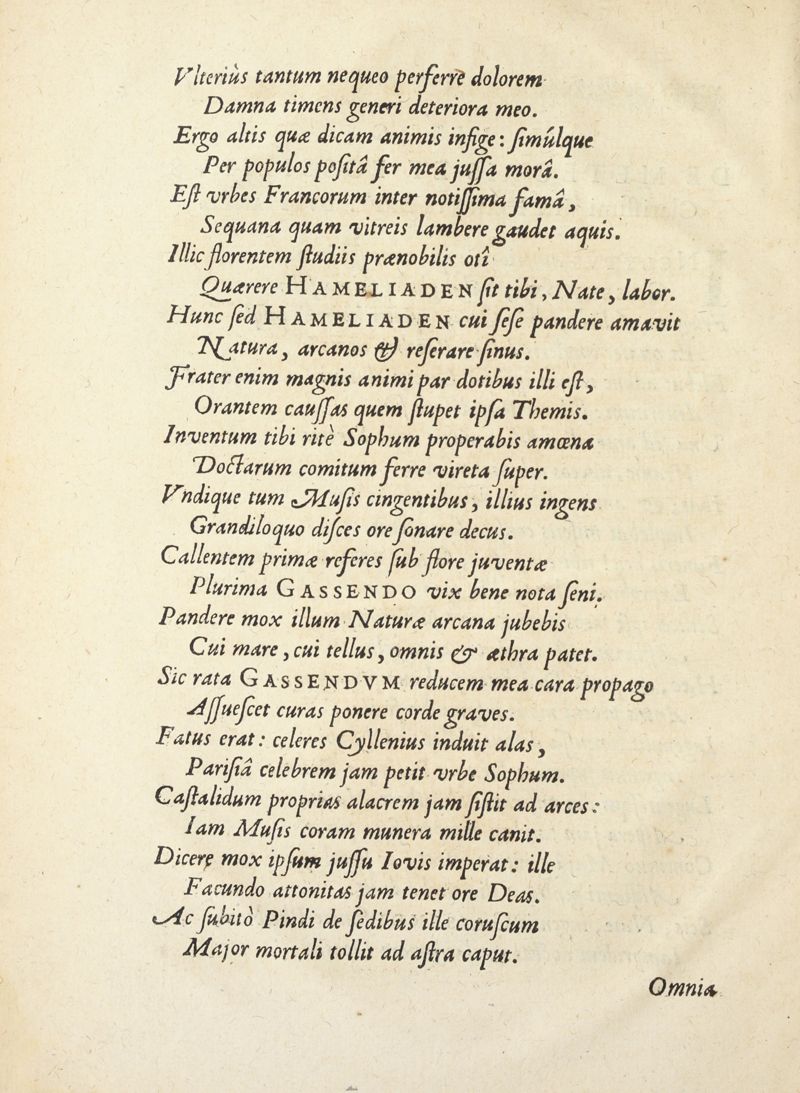 Vlteriùs tantum nequeo perferre dolorem
Damna timens generi deteriora meo.
Ergo altis quæ dicam animis infige: ſimúlque
Per populos poſitâ fer mea juſſa morâ.
Eſt vrbes Francorum inter notiſſima famâ,
Sequana quam vitreis lambere gaudet aquis.
Illic florentem ſtudiis prænobilis otî
Quærere HAMELIADEN ſit tibi, Nate, labor.
Hunc ſed HAMELIADEN cui ſeſe pandere amavit
Natura, arcanos & reſerare ſinus.
Frater enim magnis animi par dotibus illi eſt,
Orantem cauſſas quem ſtupet ipſa Themis.
Inventum tibi ritè Sophum properabis amœna
Doctarum comitum ferre vireta ſuper.
Vndique tum Muſis cingentibus, illius ingens
Grandiloquo diſces ore ſonare decus.
Callentem primæ referes ſub flore juventæ
Plurima GASSENDO vix bene nota ſeni.
Pandere mox illum Naturæ arcana jubebis
Cui mare, cui tellus, omnis & æthra patet.
Sic rata GASSENDVM reducem mea cara propago
Aſſueſcet curas ponere corde graves.
Fatus erat: celeres Cyllenius induit alas,
Pariſiâ celebrem jam petit vrbe Sophum.
Caſtalidum proprias alacrem jam ſiſtit ad arces:
Iam Muſis coram munera mille canit.
Dicere mox ipſum juſſu Iovis imperat: ille
Facundo attonitas jam tenet ore Deas.
Ac ſubitò Pindi de ſedibus ille coruſcum
Major mortali tollit ad aſtra caput.
Omnia